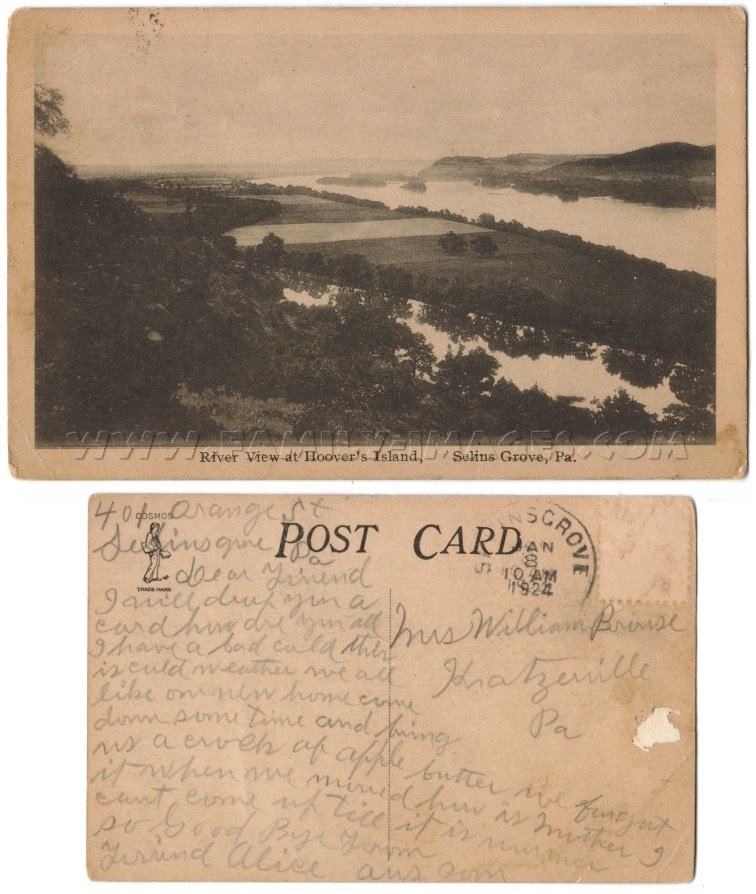 WWW.FAMILY-IMAGES.COM
River View at Hoover's Island, Selins Grove, Pa.
401 Orange St
COSMOS
TRADE MARK
POST CARD
NSGROVE
JAN
8
10 AM
1924
S
Pa
Dear Friend
I will drop you a
card how are you all
I have a bad cold this
is cold weather we all
like our new home come
down some time and bring
us a crock of apple butter we forgot
it when we moved how is Mother I
cant come up till it is warmer
so Good Bye From
Friend Alice ans soon
Mrs William Brouse
Kratzerville
Pa